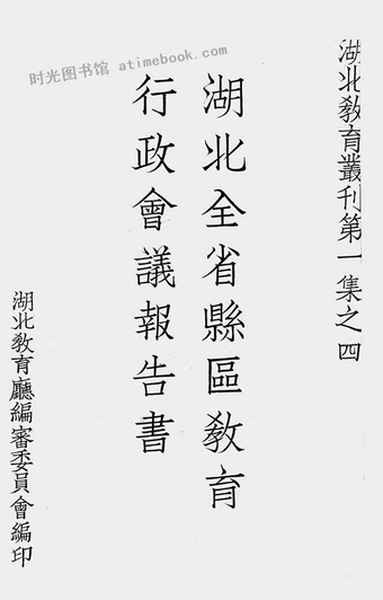 湖北教育叢刊第一集之四
湖北全省縣區教育
行政會議報告書
湖北教育廳編審委員會編印
时光图书馆 atimebook.com